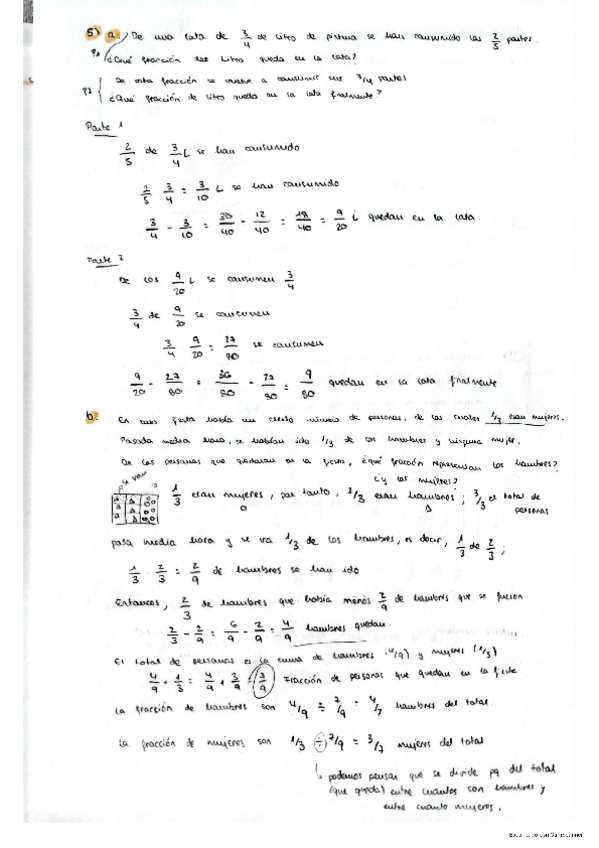 5) a) De una lata de 3/4 de litro de pintura se han consumido las 2/5 partes.
P1 ¿Qué fracción de litro queda en la lata?
P2 De esta fracción se vuelve a consumir sus 3/4 partes
¿Qué fracción de litro queda en la lata finalmente?
Parte 1
2/5 de 3/4 L se han consumido
2/5 3/4 = 3/10 L se han consumido
3/4 - 3/10 = 30/40 - 12/40 = 18/40 = 9/20 L quedan en la lata.
Parte 2
De los 9/20 L se consumen 3/4
3/4 de 9/20 se consumen
3/4 9/20 = 27/80 se consumen
9/20 - 27/80 = 36/80 - 27/80 = 9/80 quedan en la lata finalmente
b) En una fiesta había un cierto número de personas, de las cuales 1/3 eran mujeres.
Pasada media hora, se habían ido 1/3 de los hombres y ninguna mujer.
De las personas que quedaron en la fiesta, ¿qué fracción representan los hombres?
¿y las mujeres?
se van
1/3 eran mujeres, por tanto, 2/3 eran hombres; 3/3 el total de
personas
pasa media hora y se va 1/3 de los hombres, es decir, 1/3 de 2/3;
1/3 · 2/3 = 2/9 de hombres se han ido
Entonces, 2/3 de hombres que había menos 2/9 de hombres que se fueron
2/3 - 2/9 = 6/9 - 2/9 = 4/9 hombres quedan.
El total de personas es la suma de hombres (4/9) y mujeres (1/3)
4/9 + 1/3 = 4/9 + 3/9 = 7/9 Fracción de personas que quedan en la fiesta
La fracción de hombres son 4/9 ÷ 7/9 = 4/7 hombres del total.
la fracción de mujeres son 1/3 ÷ 7/9 = 3/7 mujeres del total
podemos pensar que se divide pq del total
(que queda) entre cuantos son hombres y
entre cuanto mujeres.